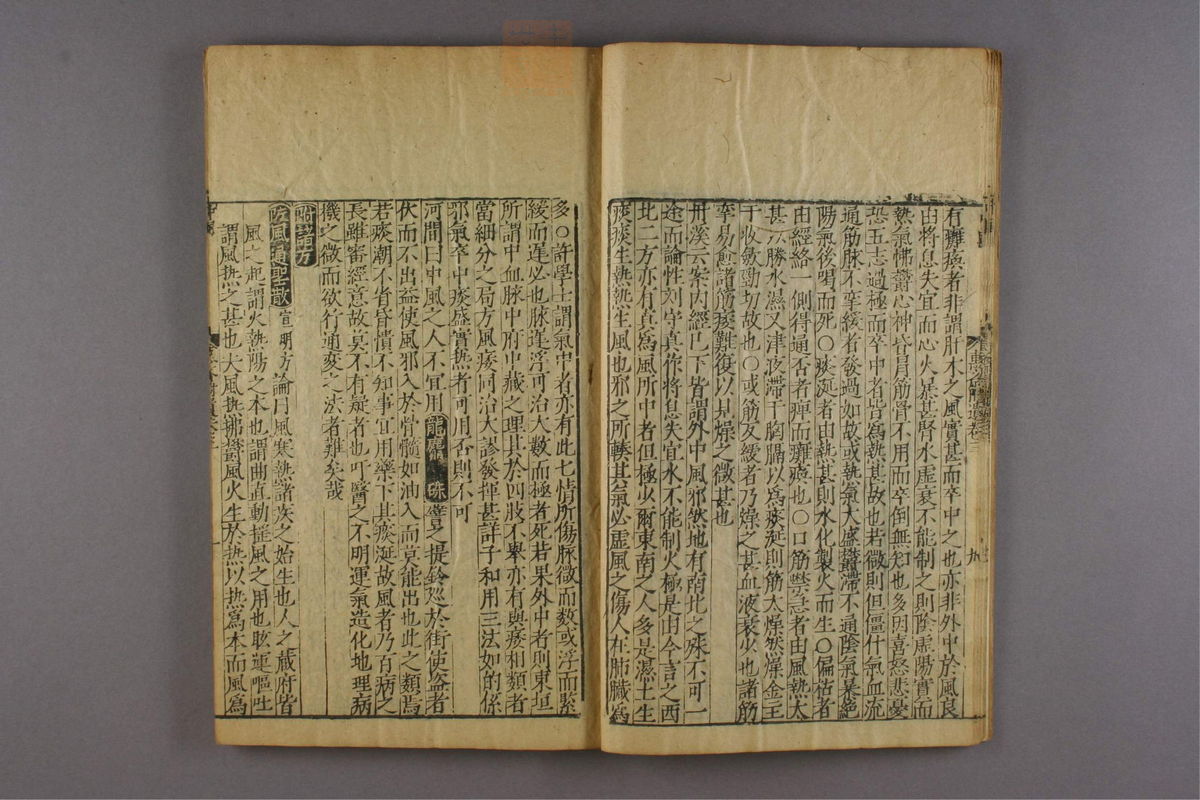 有癱瘓者非謂肝木之風實甚而卒中之也亦非外中於風良
由將息失宜而心火暴甚腎水虛衰不能制之則陰虛陽實而
熱氣怫鬱心神昏冒筋骨不用而卒倒無知也多因喜怒悲憂
恐五志過極而卒中者皆爲熱甚故也若微則但僵什氣血流
通筋脉不攣緩者發過如故或熱氣大盛鬱滯不通陰氣暴絕
陽氣後竭而死〇痰涎者由熱甚則水化製火而生〇偏枯者
由經絡一側得通否者痺而癱瘓也〇口筋
者由風熱太
甚
勝水濕又津液滯于胸膈以爲痰涎則筋太燥然燥金主
于收斂勁切故也〇或筋反緩者乃燥之甚血液衰少也諸筋
攣易愈諸筋痿難復以見燥之微甚也
丹溪云案內經巳下皆謂外中風邪然地有南北之殊不可一
途而論惟刘守真作將息失宜水不能制火極是由今言之西
北二方亦有真爲風所中者但極少爾東南之人多是濕土生
痰痰生熱熱生風也邪之所輳其氣必虛風之傷人在肺臟爲
多〇許學士謂氣中者亦有此七情所傷脉微而数或浮而緊
緩而遲必也脉遲浮可治大数而極者死若果外中者則東垣
所謂中血脉中府中藏之理其於四肢不舉亦有與痿相類者
當細分之局方風痿同治大謬發揮甚詳子和用三法如的係
邪氣卒中痰盛實热者可用否則不可
河間曰中風之人不宜用龍麝
硃
之提鈴巡於街使盜者
伏而不出益使風邪入於骨髓如油入而莫能出也此之類焉
若痰潮不省昏憒不知事宜用藥下其痰涎故風者乃百病之
長雖審經意故莫不有疑者也吁醫之不明運氣造化地理病
機之微而欲行通变之法者難矣哉
附諸方
防風通聖散 宣明方 論曰風寒熱諸疾之始生也人之藏府皆
風之起謂火熱陽之本也謂曲直動搖風之用也眩運嘔吐
謂風热之甚也夫風热拂鬱風火生於热以热爲本而風爲